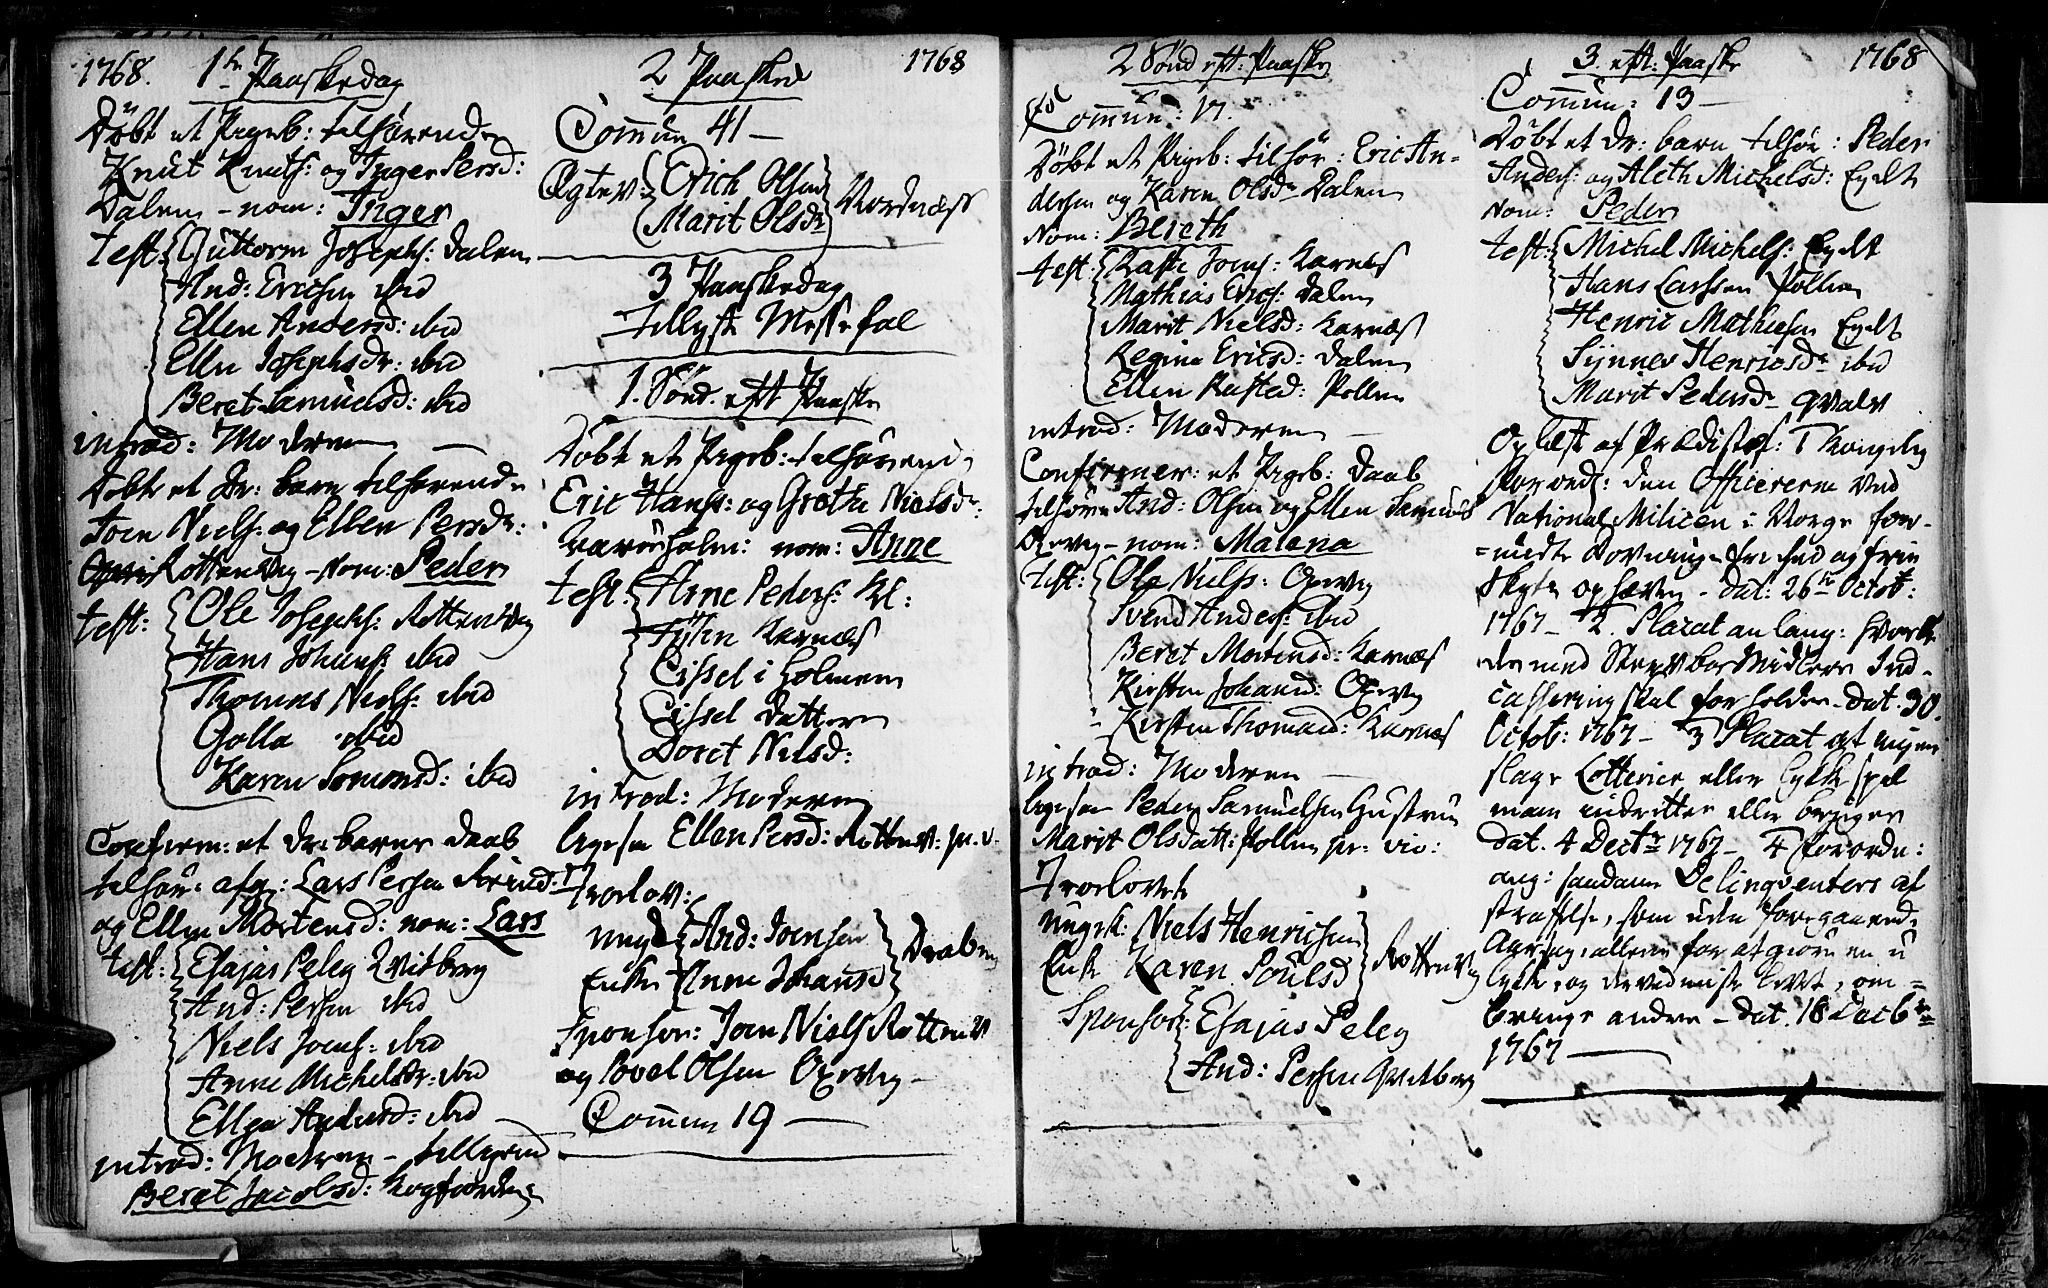 1768. 1te Paaskedag
Döbt et Pigeb: tilhörende
Knut Knuts: og Inger Persd:
Dalen - nom: Inger
test: Guttorm Josephs: Dalen
And: Ericsen ibid
Ellen Andersd: ibid
Ellen Josephsdr: ibid
Beret Samuelsd: ibid
introd: Moderen
Döbt et Dr: barn tilhörende
Joen Niels: og Ellen Persdr:
Rottenvig - Nom: Peder
test: Ole Josephs: Rottenvig
Hans Johans: ibid
Thomas Niels: ibid
Golla ibid
Karen Simonsd: ibid
Confirm: et Dr: barns Daab
tilhör: afg: Lars Persen
og Ellen Mortensd: nom: Lars
test: Esajas Peleg Qvitberg
And: Persen ibid
Niels Joens: ibid
Anne Michelsdr: ibid
Ellen Andersd: ibid
introd: Moderen -
Beret Jacobsd:
2 Paasked 1768
Commun 41 -
Ægtev: Erich Olsen
Marit Olsdr Nordnæss
3 Paaskedag
Messefal
1. Sönd. eft Paaske
Döbt et Pigeb: tilhörende
Eric Hans: og Grethe Nielsdr:
nom: Anne
test: Arne Peders: Kl:
Karnæs
Cissel i Holmen
Cissel Datter
Doret Nilsd:
introd: Moderen
ligesaa Ellen Persd: Rottenv: pr. v.
Trolov:
Ungk And: Joensen
Enke Anne Johansd
Sponsor: Joen Niels Rottenv
og Povel Olsen Oxevig -
Commun 19 -
2 Sönd eft: Paaske
Commun: 17.
Döbt et Pigeb: tilhör: Eric An-
dersen og Karen Olsdr Dalen
Nom: Bereth
test: Joens: Karnæs
Mathias Erics: Dalen
Marit Nielsd: Karnæs
Regina Ericsd: Dalen
Ellen Pollen
introd: Moderen -
Confirmer: et Pigeb: Daab
tilhör: And: Olsen og Ellen Samuels
Oxevig - nom: Malena
Test: Ole Niels: Oxevig
Svend Anders: ibid
Beret Mortensd: Karnæs
Kirsten Johansd: Oxevig
Kirsten Thomasd: Karnæs
introd: Moderen -
ligesaa Peder Samuelsen
Marit Olsdatt: Pollen pr: vic:
Trolovede
ungk: Niels Henrichsen
Enke Karen Poulsd Rottenvig
Sponsor: Esajas Peleg
And: Persen Qvitberg
3. eft: Paaske 1768
Commun: 13 -
Döbt et Dr: barn tilhör: Peder
Anders: og Aleth Michelsd: Eydt
Nom: Peder
test: Michel Michels: Eydt
Hans Larssen Pollen
Henric Mathiesen Eydt
Synnev Henricsdr ibid
Marit Pedersdr Qvalv
Oplæst af Prædikst: 1 Kongelig
Forord: den Officererne ved
National Militien i Norge for-
=undte fri
skyts ophæves - dat: 26de Octob:
1767 - 2. Placat anlang: hvorle
des med Midlers Ind-
casering skal forholdes - dat. 30.
Octob: 1767 - 3 Placat at ingen
slags Lotterier eller Lykke spil
maae indrettes eller bruges
dat. 4 Decbr 1767 - 4 Forordn:
ang: saadanne Delinqventers af
straffelse, som uden foregaaende
Aarsag, allene for at giöre en u
lykke, og derved miste livet, om=
bringe andre - dat. 18 Decbr
1767